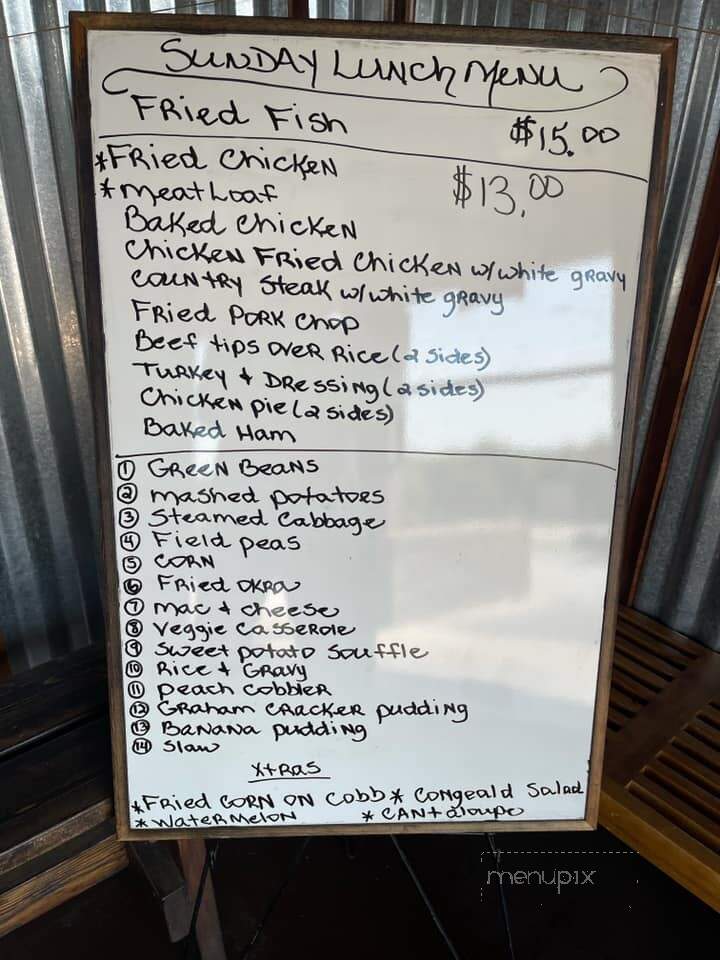 SUNDAY LUNCH MENU
FRied Fish $15.00
*FRied Chicken $13.00
*meat Loaf
Baked Chicken
Chicken FRied Chicken w/white gravy
country Steak w/white gravy
FRied Pork Chop
Beef tips over Rice (2 sides)
Turkey + Dressing (2 sides)
Chicken pie (2 sides)
Baked Ham
① Green Beans
② mashed potatoes
③ Steamed Cabbage
④ Field peas
⑤ CORN
⑥ FRied okra
⑦ mac + cheese
⑧ Veggie Casserole
⑨ Sweet potato Souffle
⑩ Rice + Gravy
⑪ peach Cobbler
⑫ Graham Cracker pudding
⑬ Banana pudding
⑭ Slaw
Xtras
*FRied CORN ON Cobb * Congeald Salad
*Watermelon * Cantaloupe
menupix